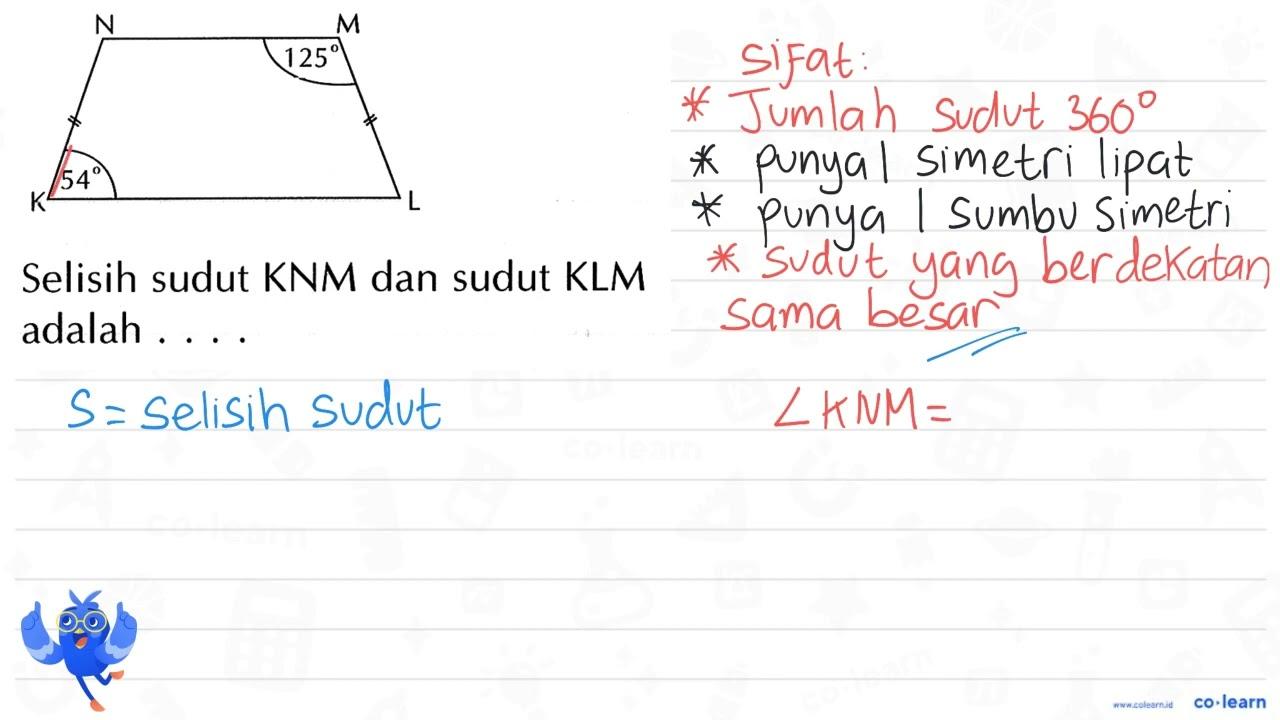 N
M
125°
54°
K
L
Selisih sudut KNM dan sudut KLM
adalah . . . .
S = Selisih sudut
Sifat:
* Jumlah sudut 360°
* punya 1 simetri lipat
* punya 1 sumbu simetri
* sudut yang berdekatan,
sama besar
∠KNM =
co·learn
co·learn
co·learn
www.colearn.id
co·learn